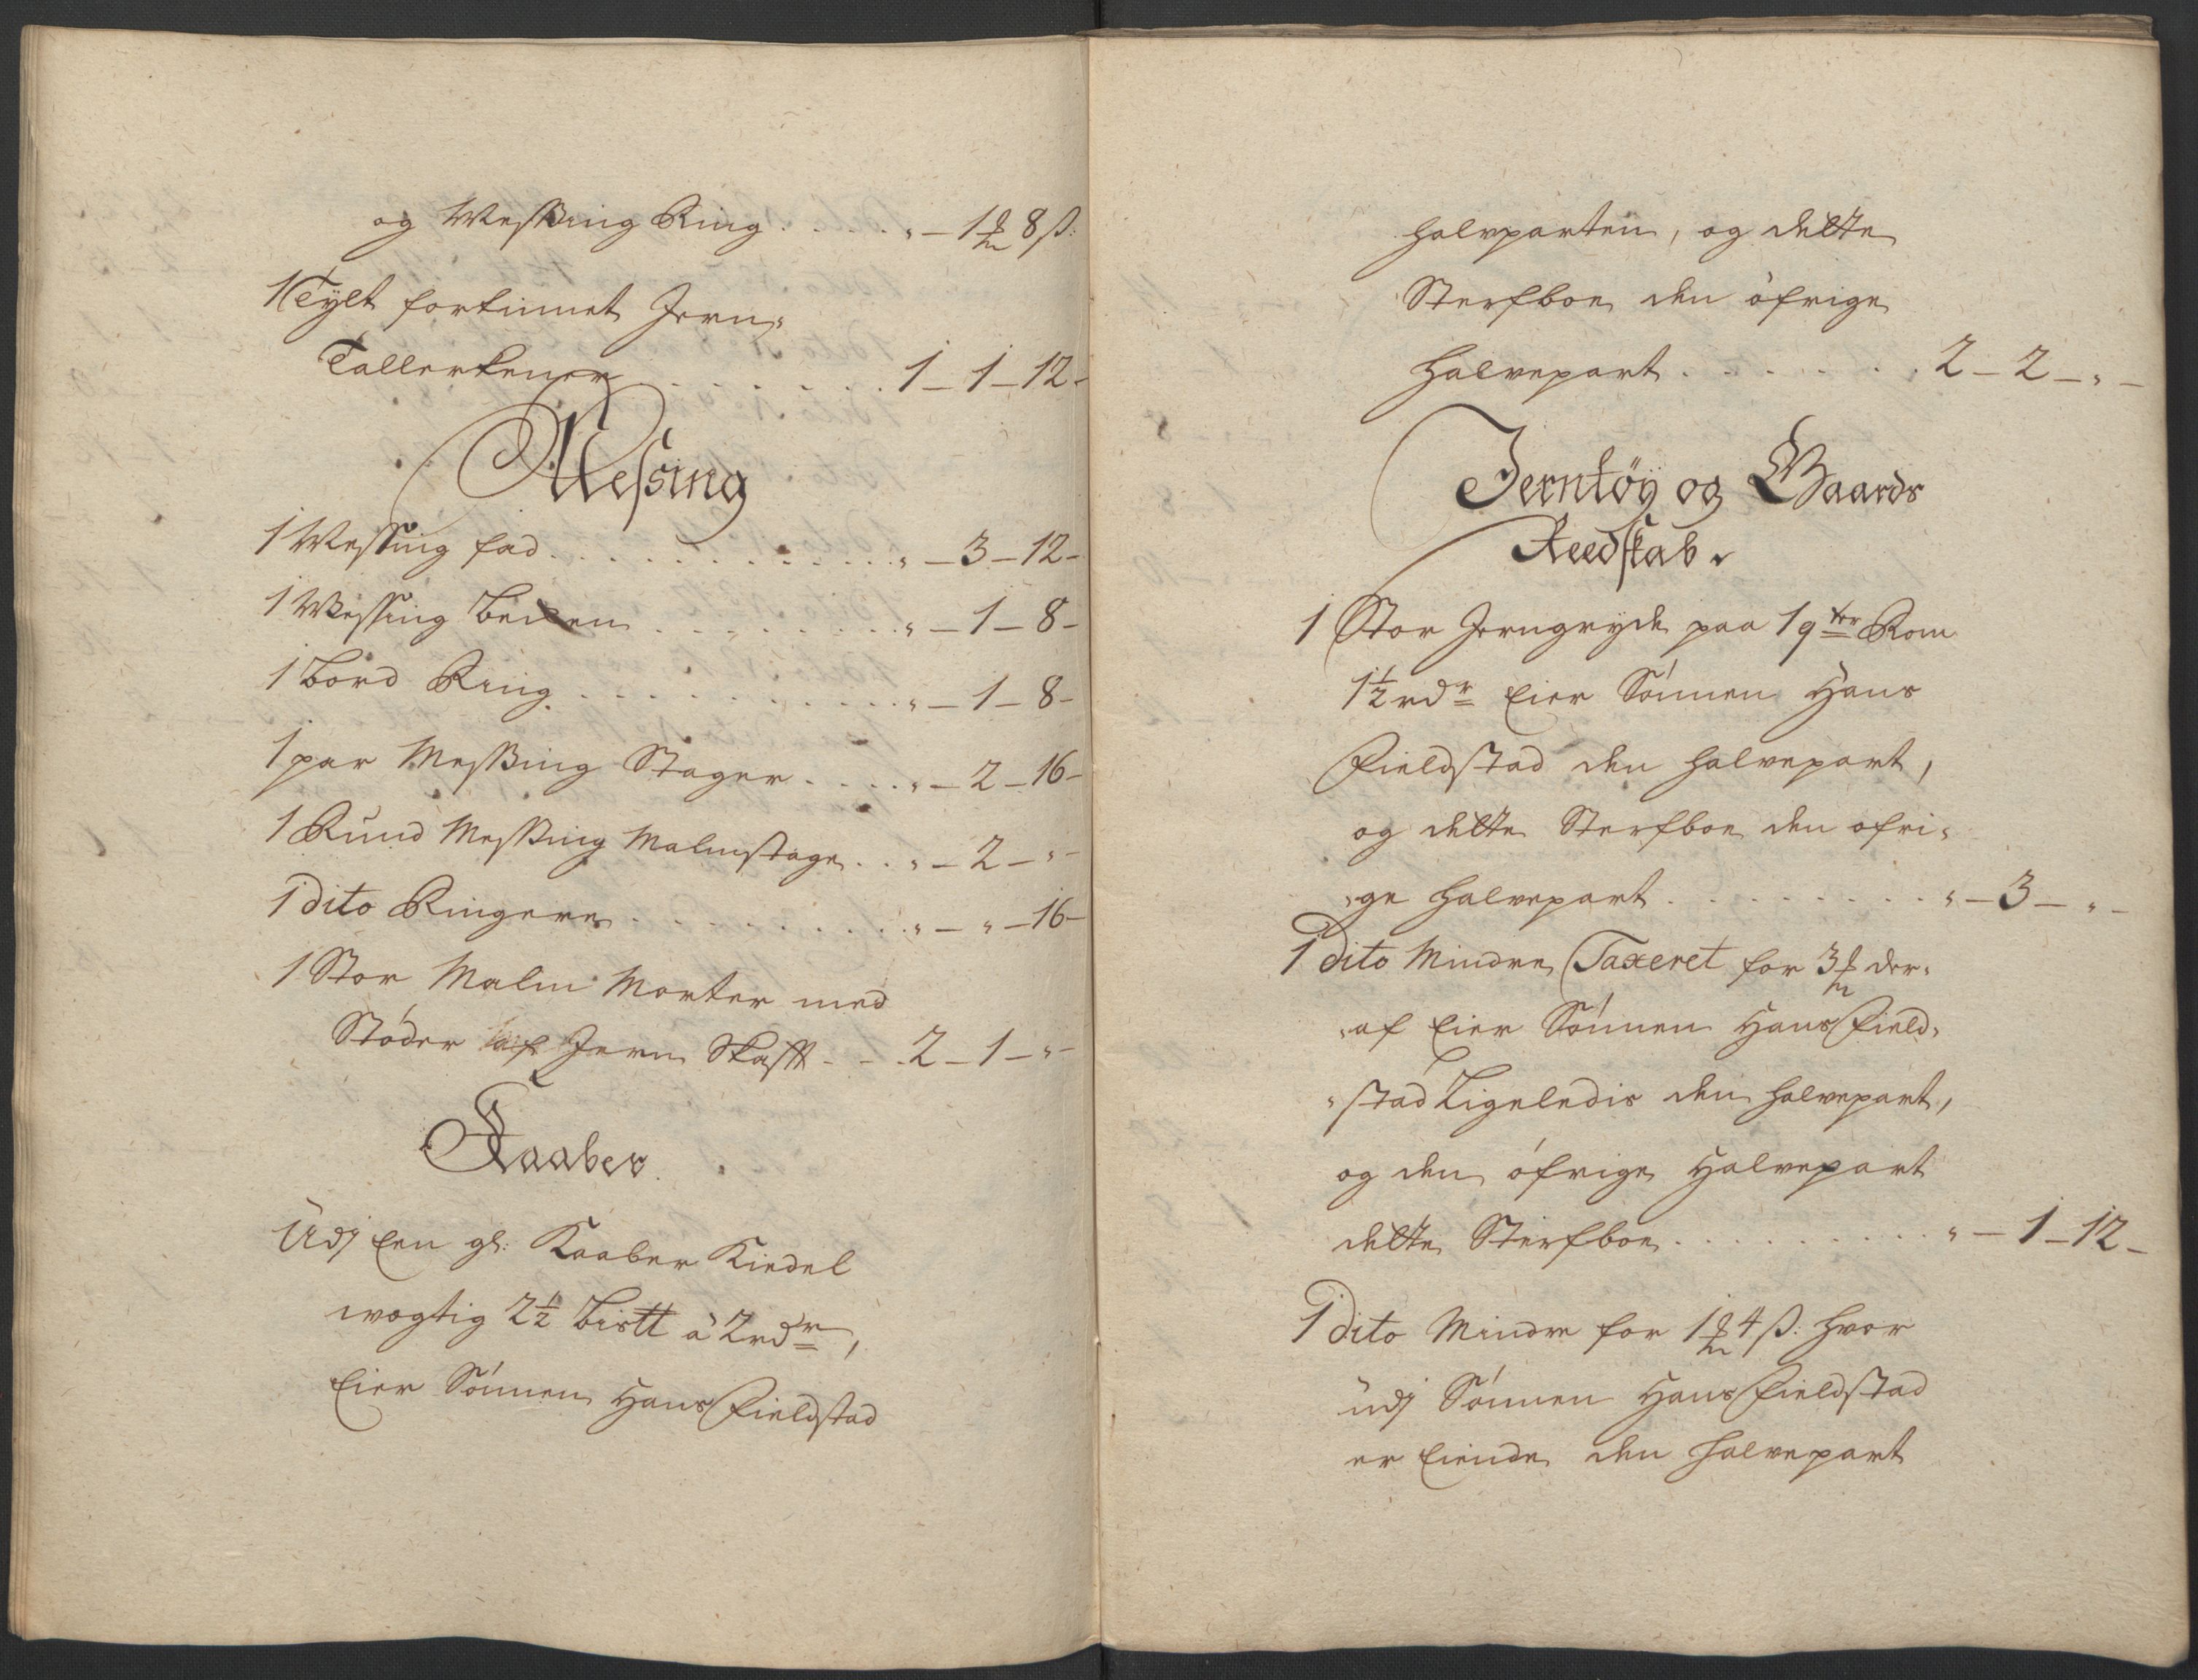 og Messing Ring . . . . . „ – 1 ₰ 8 ß:
1 Tylt fortinnet Jern„
Tallerkener . . . . . . . 1 – 1 – 12 –
Messing
1 Messing fad . . . . . . . . . . . „ – 3 – 12 –
1 Messing Becken . . . . . . . . . „ – 1 – 8 –
1 Bord Ring . . . . . . . . . . . „ – 1 – 8 –
1 par Messing Stager . . . . „ – 2 – 16 –
1 Rund Messing Malmstage . . „ – 2 – „ –
1 dito Ringere . . . . . . . . . „ – „ – 16 –
1 Stor Malm Morter med
Stöder af Jern Skafft - - . 2 – 1 – „ –
Kaaber
Udj Een gl: Kaaber Kiedel
wogtig 2½ Bistt â 2 rdr,
Eier Sönnen Hans Fieldstad
halvparten, og dette
Sterfboe den öfrige
halvepart . . . . . . . 2 – 2 – „ –
Jerntöÿ og Gaards
Reedskab.
1 Stor Jerngryde paa 19ter Rom
1½ rdr Eier Sönnen Hans
Fieldstad den halvepart,
og dette Sterfboe den ofri„
„ge halvepart . . . . . . . . . „ – 3 – „ –
1 dito Mindre Taxeret for 3 ₰ der„
„af Eier Sönnen Hans Field„
„stad Ligeledis den halvepart,
og den öfrige Halvepart
dette Sterfboe . . . . . . . . . . „ – 1 – 12 –
1 dito Mindre for 1 ₰ 4 ß: hvor
udj Sönnen Hans Fieldstad
er Eiende den halvepart